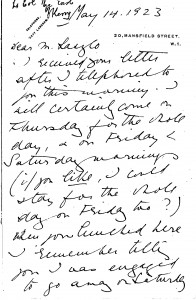 May 14. 1923
20, MANSFIELD STREET,
W.1.
Dear M. Laszlo
I received your letter
after I telephoned to
you this morning. I
will certainly come on
Thursday for the whole
day, & on Friday &
Saturday mornings
(if you like, I could
stay for the whole
day on Friday too?)
When you lunched here
I remember telling
you I was engaged
to go away on Saturday